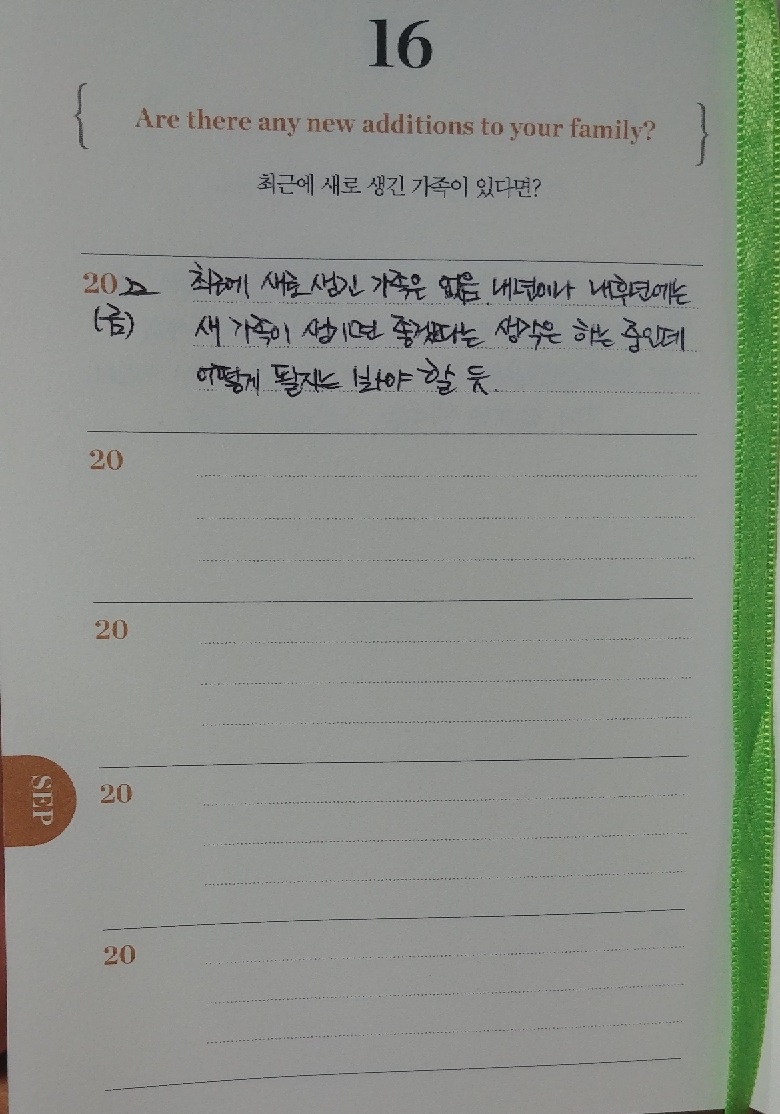 16
Are there any new additions to your family?
최근에 새로 생긴 가족이 있다면?
20 최근에 새로 생긴 가족은 없음. 내년이나 내후년에는
(금) 새 가족이 생기면 좋겠다는 생각은 하는 중인데
어떻게 될지는 봐야 할 듯.
20
20
20
20
SEP